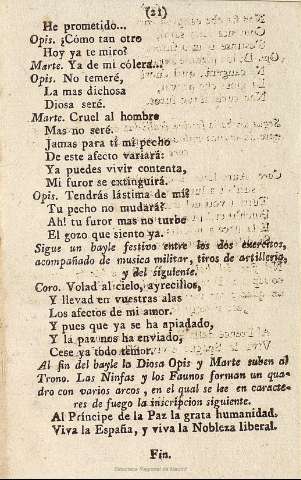 (21)
He prometido...
Opis. ¿Cómo tan otro
Hoy ya te miro?
Marte. Ya de mi cólera...
Opis. No temeré,
La mas dichosa
Diosa seré.
Marte. Cruel al hombre
Mas no seré.
Jamas para tí mi pecho
De este afecto variará:
Ya puedes vivir contenta,
Mi furor se extinguirá.
Opis. Tendrás lástima de mí?
Tu pecho no mudará?
Ah! tu furor mas no turbe
El gozo que siento ya.
Sigue un bayle festivo entre los dos exercitos,
acompañado de musica militar, tiros de artilleria,
y del siguiente.
Coro. Volad al cielo, ayrecillos,
Y llevad en vuestras alas
Los afectos de mi amor.
Y pues que ya se ha apiadado,
Y la paz nos ha enviado,
Cese ya todo temor.
Al fin del bayle la Diosa Opis y Marte suben al
Trono. Las Ninfas y los Faunos forman un qua-
dro con varios arcos, en el qual se lee en caracte-
res de fuego la inscripcion siguiente.
Al Príncipe de la Paz la grata humanidad.
Viva la España, y viva la Nobleza liberal.
Fin.
Biblioteca Regional de Madrid